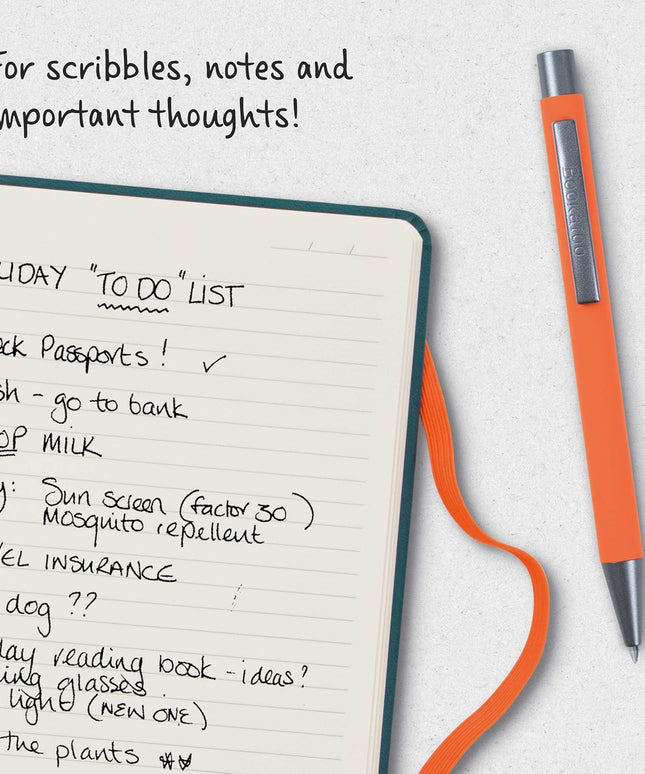 For scribbles, notes and
important thoughts!
LIDAY "TO DO" LIST
ck Passports! ✓
sh - go to bank
OP MILK
y: Sun screen (factor 30)
Mosquito repellent
EL INSURANCE
dog ??
day reading book - ideas?
ing glasses
light (NEW ONE)
the plants
Bookaroo